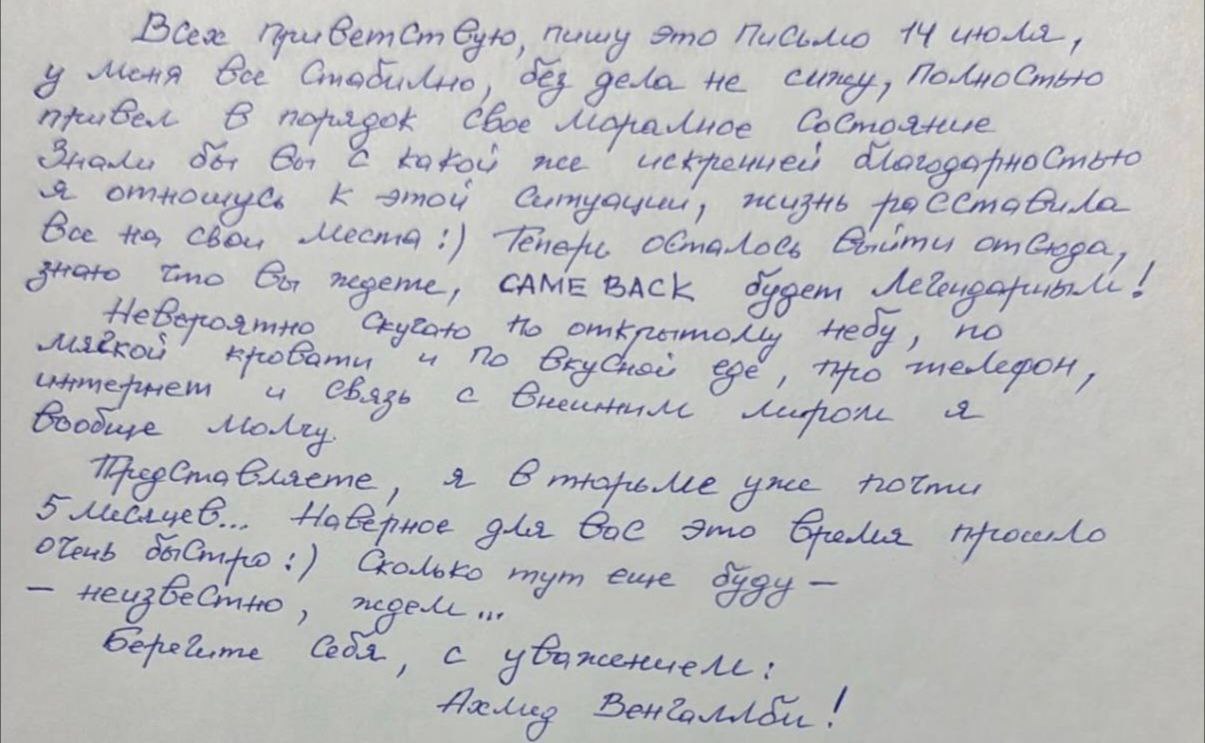 Всех приветствую, пишу это письмо 14 июля,
у меня все стабилно, без дела не сижу, полностью
привел в порядок свое моралное состояние
Знали бы вы с какой же искренней благодарностью
я отношусь к этой ситуации, жизнь расставила
все на свои места :) Теперь осталось выйти отсюда,
знаю что вы ждете, CAME BACK будет легендарным!
Невероятно скучаю по открытому небу, по
мягкой кровати и по вкусной еде, про телефон,
интернет и связь с внешним миром я
вообще молчу.
Представляете, я в тюрьме уже почти
5 месяцев... Наверное для вас это время прошло
очень быстро :) Сколько тут еще буду –
– неизвестно, ждем...
Берегите себя, с уважением:
Ахмед Венгаллби!